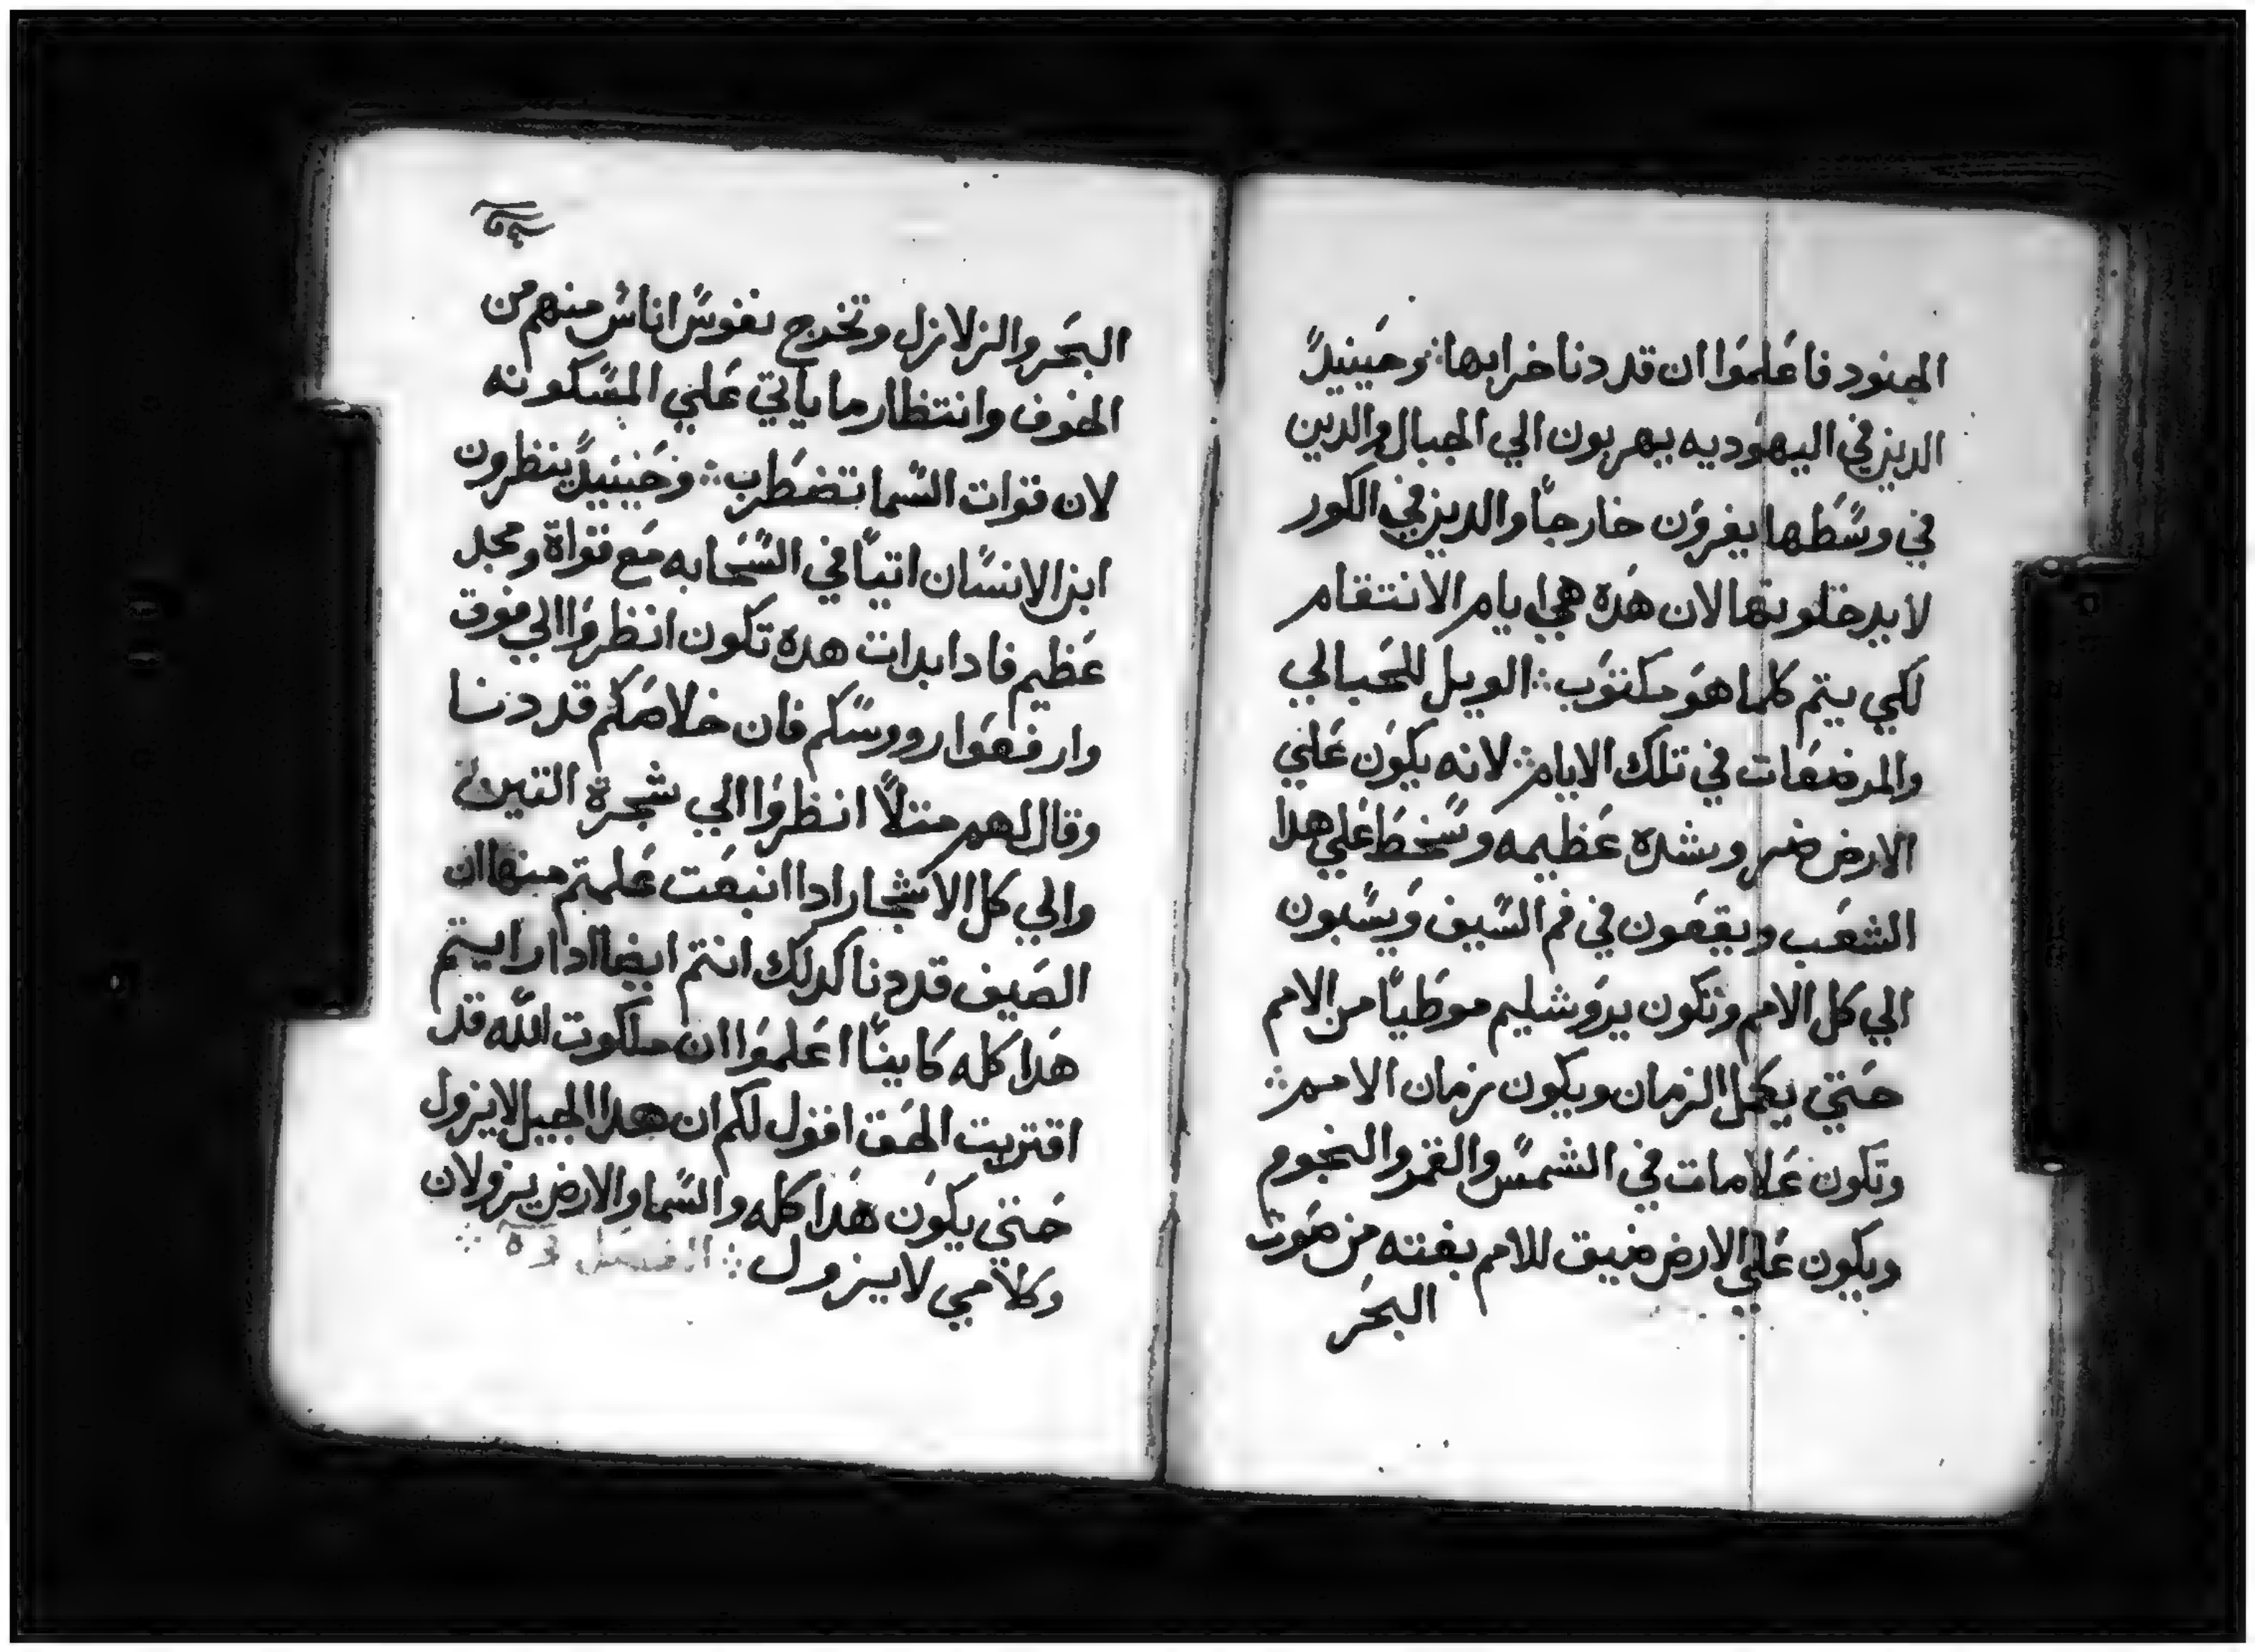 الجنود فاعلموا ان قد دنا خرابها ⁘ وحينيدً
الدين في اليهوديه يهربون الي الجبال والدين
في وسطها يفرون خارجاً والدين في الكور
لا يدخلونها لان هده هي ايام الانتقام
لكي يتم كلما هو مكتوب ⁘ الويل للحبالي
والمرضعات في تلك الايام ⁘ لانه يكون علي
الارض ضر وشده عظيمه وسخط علي هدا
الشعب ويقعون في فم السيف ويسبون
الي كل الامم وتكون يروشليم موطياً من الامم
حتي يكمل الزمان ويكون زمان الامم ⁘
وتكون علامات في الشمس والقمر والنجوم
ويكون علي الارض ضيق للامم بغته من صوت
البحر
البحر والزلازل وتخرج نفوس اناس منهم من
الخوف وانتظار ما ياتي علي المسكونه
لان قوات السما تضطرب ⁘ وحينيدً ينظرون
ابن الانسان اتياً في السحابه مع قواة ومجد
عظيم فادا بدات هده تكون انظروا الي فوق
وارفعوا رووسكم فان خلاصكم قد دنا
وقال لهم متلاً انظروا الي شجرة التين
والي كل الاشجار ادا انبعت علمتم منها ان
الصيف قد دنا كدلك انتم ايضا ادا رايتم
هدا كله كايناً اعلموا ان ملكوت الله قد
اقتربت الحق اقول لكم ان هدا الجيل لا يزول
حتي يكون هدا كله والسما والارض يزولان
وكلامي لا يزول ⁘ الفصل